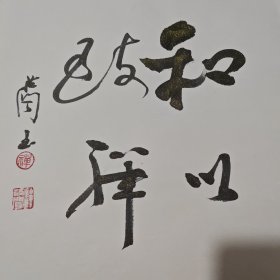 和以
致祥
蘭玉